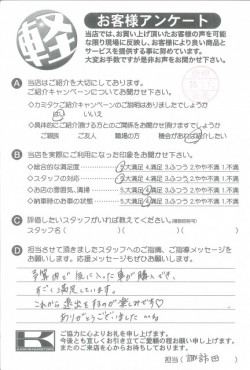 軽
お客様アンケート
当店では、お買い上げ頂いたお客様の声を可能
な限り現場に反映し、お客様により良い商品と
サービスを提供する事に努めています。
大変お手数ですが是非お声をお聞かせ下さい。
A 当店はご紹介を大切にしております。
ご紹介キャンペーンについてお聞かせ下さい。
◇カミタケご紹介キャンペーンのご説明はありましたでしょうか
はい いいえ
◇具体的にご紹介頂ける方とのご関係をお聞かせ頂けますでしょうか
ご親族 ご友人 職場の方 機会があれば紹介したい
B 当店を実際にご利用になった印象をお聞かせ下さい。
◇総合的な満足度 5.大満足 4.満足 3.ふつう 2.やや不満 1.不満
◇スタッフの対応 5.大満足 4.満足 3.ふつう 2.やや不満 1.不満
◇お店の雰囲気、清掃 5.大満足 4.満足 3.ふつう 2.やや不満 1.不満
◇納車時のお車の状態 5.大満足 4.満足 3.ふつう 2.やや不満 1.不満
C 評価したいスタッフがいれば教えてください。
スタッフ名( )( )( )
D 担当させて頂きましたスタッフへのご指摘、ご指導メッセージを
お願いします。応援メッセージもぜひお願いします。
予算内で気に入った車が購入でき、
すごく満足しています。
これから遠出をするのが楽しみです♡
ありがとうございました
K
ご協力に心よりお礼を申し上げます。
今後とも宜しくお引き立てご愛顧の程お願い申し上げます。
またのご来店を心からお待ちしております。
担当( 諏訪田 )